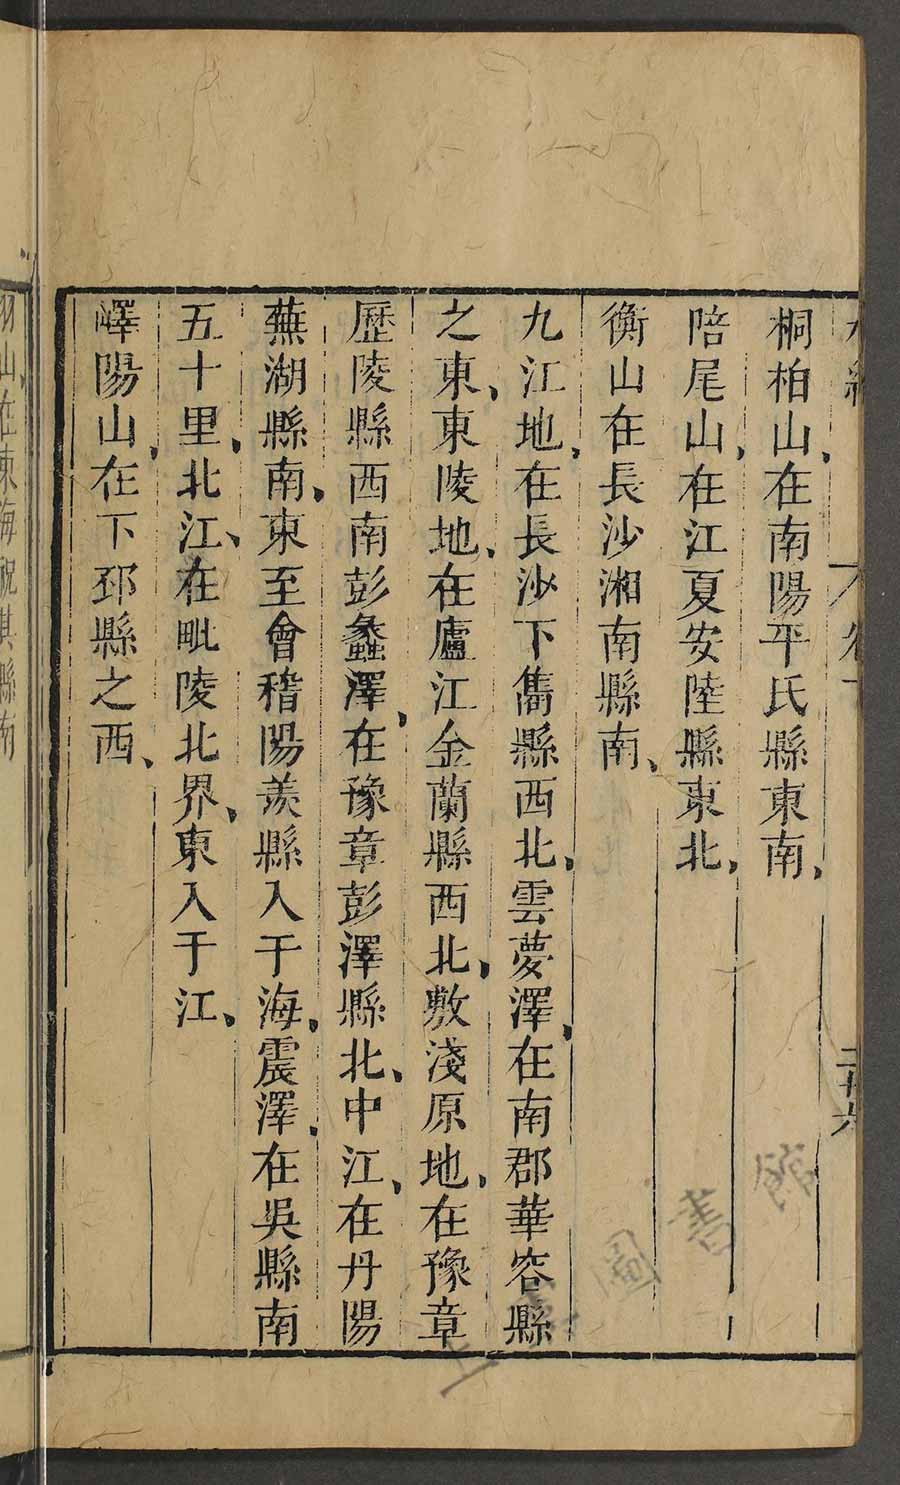 水經 卷下 二十六
桐柏山、在南陽平氏縣東南、
陪尾山、在江夏安陸縣東北、
衡山在長沙湘南縣南、
九江地、在長沙下雋縣西北、雲夢澤、在南郡華容縣
之東、東陵地、在廬江金蘭縣西北、敷淺原地、在豫章
歷陵縣西南彭蠡澤、在豫章彭澤縣北、中江、在丹陽
蕪湖縣南、東至會稽陽羨縣入于海、震澤、在吳縣南
五十里、北江、在毗陵北界、東入于江、
嶧陽山、在下邳縣之西、
羽山、在東海祝其縣南